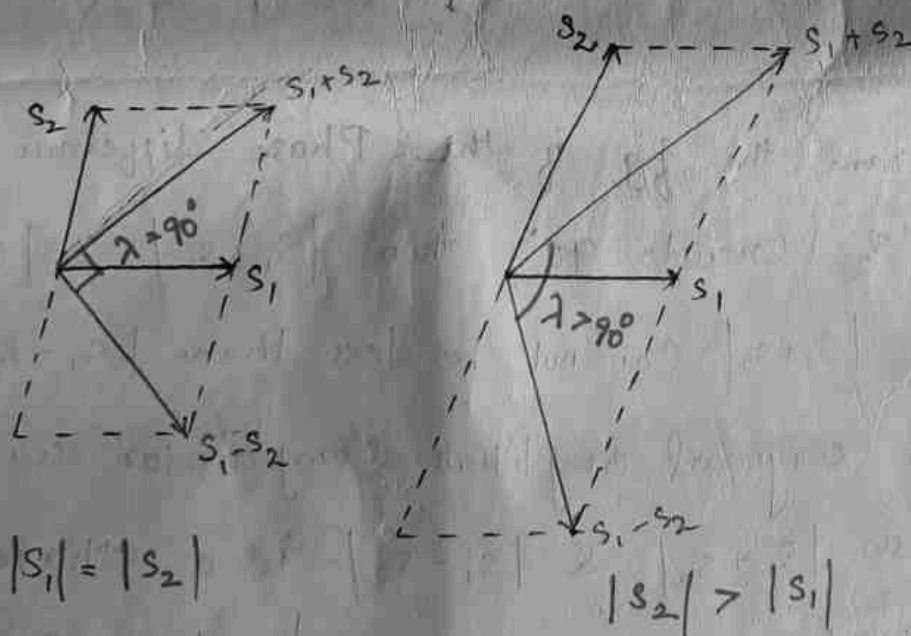 S2
S1+S2
λ=90°
S1
S1-S2
|S1| = |S2|
S2
S1+S2
λ>90°
S1
S1-S2
|S2| > |S1|